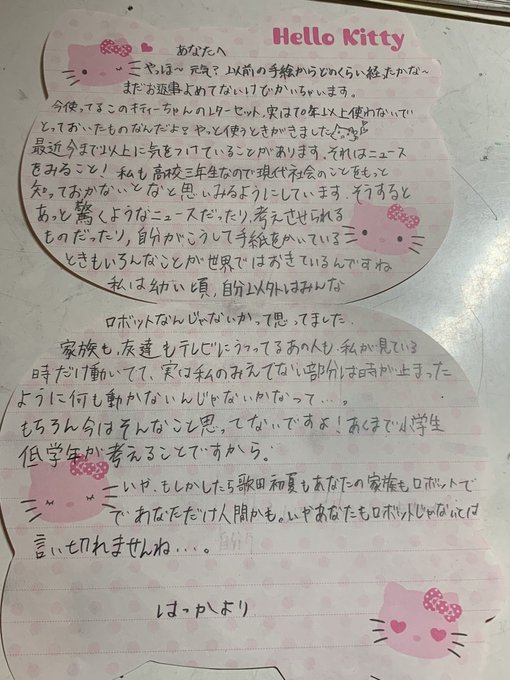 Hello Kitty
あなたへ
やっほ〜 元気？以前の手紙からどのくらい経ったかな〜
まだお返事よめてないけどかいちゃいます。
今使ってるこのキティーちゃんのレターセット、実は10年以上使わないで
とっておいたものなんだよ？やっと使うときがきました
最近今まで以上に気をつけていることがあります、それはニュース
をみること！私も高校三年生なので現代社会のことをもっと
知っておかないとなと思いみるようにしています。そうすると
あっと驚くようなニュースだったり、考えさせられる
ものだったり、自分がこうして手紙をかいている
ときもいろんなことが世界ではおきているんですね
私は幼い頃、自分以外はみんな
ロボットなんじゃないかって思ってました．
家族も、友達もテレビにうつってるあの人も、私が見ている
時だけ動いてて、実は私のみえてない部分は時が止まった
ように何も動かないんじゃないかなって...。
もちろん今はそんなこと思ってないですよ！あくまで小学生
低学年が考えることですから．
いや、もしかしたら歌田初夏もあなたの家族もロボットで
であなただけ人間かも。いやあなたもロボットじゃないとは
言い切れませんね...。
はっかより